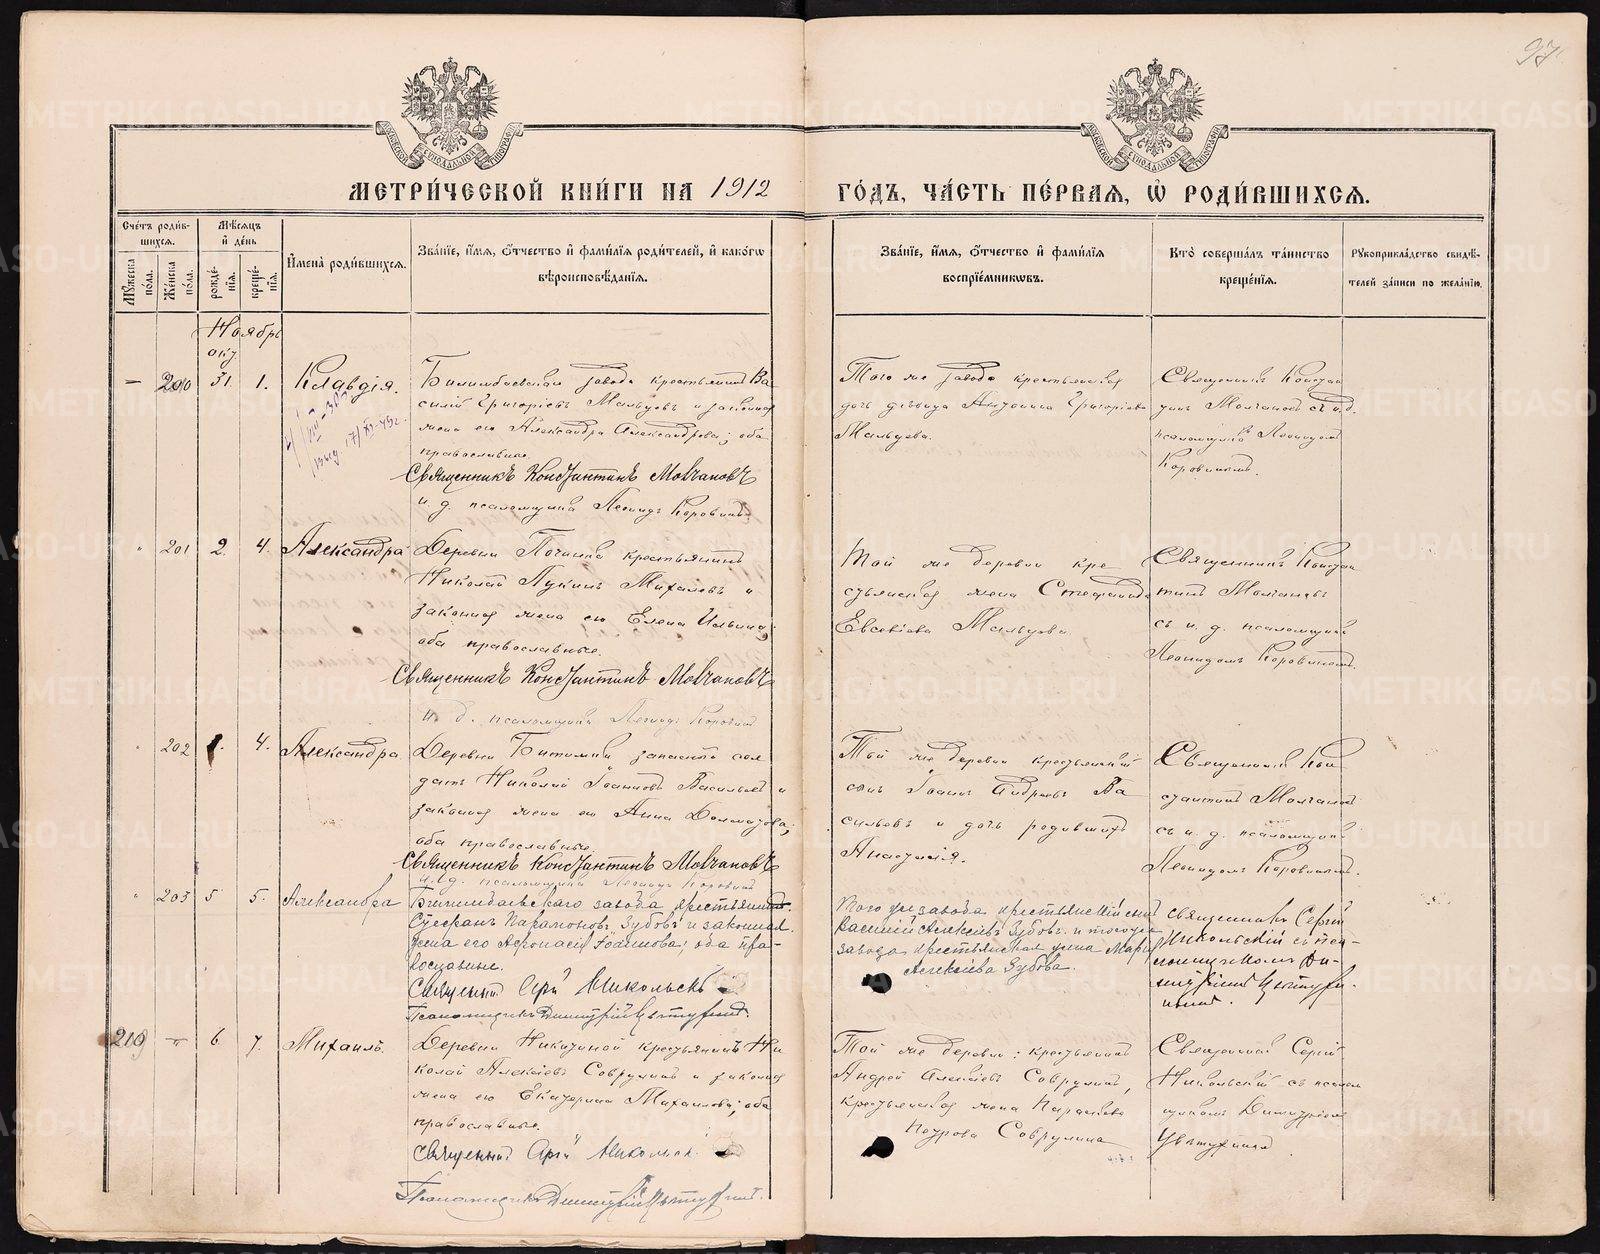 97
МЕТРИ́ЧЕСКОЙ КНИ́ГИ НА 1912 ГО́ДЪ, ЧА́СТЬ ПЕ́РВАЯ, Ѡ҆ РОДИ́ВШИХСЯ.
Сче́тъ роди́вшихся.
Мꙋ́жеска по́ла.
Же́нска по́ла.
Мѣ́сяцъ и҆ де́нь
рожде́нїя.
креще́нїя.
И҆мена̀ роди́вшихся.
Зва́нїе, и҆́мя, ѻ҆́тчество и҆ фами́лїя роди́телей, и҆ како́гѡ
вѣроисповѣ́данїя.
Зва́нїе, и҆́мя, ѻ҆́тчество и҆ фами́лїя
воспрїе́мникѡвъ.
Кто̀ соверша́лъ та́инство
креще́нїя.
Рꙋкоприкла́дство свидѣ́-
телей за́писи по жела́нїю.
Ноябрь
окт.
— 200 31. 1. Клавдія.
Билимбаевскаго завода крестьянинъ Ва
силій Григоріевъ Мальцевъ и законная
жена его Александра Александрова; оба
православные.
Священникъ Константинъ Молчановъ
и. д. псаломщика Леонидъ Коровинъ
Того же завода крестьянская
дочь девица Григоріева
Мальцева.
Священникъ Констан
тинъ Молчановъ съ и. д.
псаломщика Леонидомъ
Коровинымъ.
" 201 2. 4. Александра
Деревни Починка крестьянинъ
Николай Михалевъ и
законная жена его Елена Ильина;
оба православные.
Священникъ Константинъ Молчановъ
и. д. псаломщика Леонидъ Коровинъ
Той же деревни кре
стьянская жена Стефанида
Евсевіева Мальцева.
Священникъ Констан
тинъ Молчановъ
съ и. д. псаломщика
Леонидомъ Коровинымъ.
" 202 1. 4. Александра
Деревни Битимки запасной сол
датъ Николай Іоанновъ Васильевъ и
законная жена его Анна
оба православные.
Священникъ Константинъ Молчановъ
и. д. псаломщика Леонидъ Коровинъ
Той же деревни крестьянскій
сынъ Іоаннъ Андреевъ Ва
сильевъ и дочь родившихъ
Анастасія.
Священникъ Кон
стантинъ Молчановъ
съ и. д. псаломщика
Леонидомъ Коровинымъ.
" 203 5 5. Александра
Билимбаевскаго завода крестьянинъ
Стефанъ Парамоновъ Зубовъ и законная
жена его Афонасія; оба пра-
вославные.
Священникъ Сергій Никольскій
Псаломщикъ Димитрій
Того же завода крестьянскій сынъ
Василій Алексіевъ Зубовъ и того же
завода крестьянская жена Марія
Алексіева Зубова.
священникъ Сергій
Никольскій съ пса-
ломщикомъ Ди-
митріемъ
210 — 6 7. Михаилъ.
Деревни Никитиной крестьянинъ Ни
колай Алексіевъ Соврулинъ и законная
жена его Екатерина Михаилова; оба
православные.
Священникъ Сергій Никольскій
Псаломщикъ Димитрій
Той же деревни: крестьянинъ
Андрей Алексіевъ Соврулинъ,
крестьянская жена Параскева
Петрова Соврулина
Священникъ Сергій
Никольскій съ псалом
щикомъ Димитріемъ